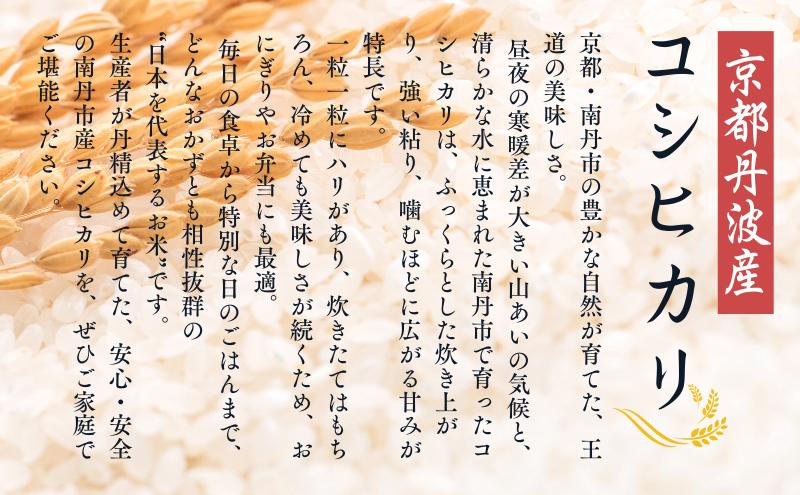 京都丹波産
コシヒカリ
京都・南丹市の豊かな自然が育てた、王
道の美味しさ。
昼夜の寒暖差が大きい山あいの気候と、
清らかな水に恵まれた南丹市で育ったコ
シヒカリは、ふっくらとした炊き上が
り、強い粘り、噛むほどに広がる甘みが
特長です。
一粒一粒にハリがあり、炊きたてはもち
ろん、冷めても美味しさが続くため、お
にぎりやお弁当にも最適。
毎日の食卓から特別な日のごはんまで、
どんなおかずとも相性抜群の
“日本を代表するお米”です。
生産者が丹精込めて育てた、安心・安全
の南丹市産コシヒカリを、ぜひご家庭で
ご堪能ください。